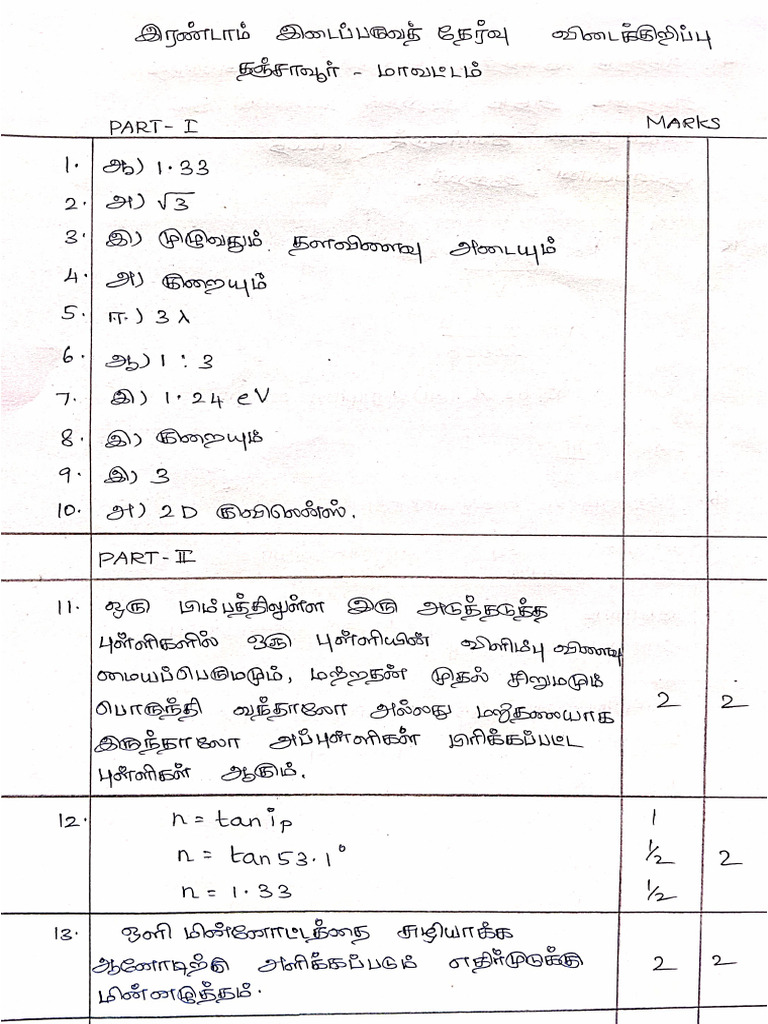 இரண்டாம் இடைப்பருவத் தேர்வு விடைக்குறிப்பு
தஞ்சாவூர் - மாவட்டம்
PART - I MARKS
1. ஆ) 1.33
2. அ) √3
3. இ) முழுவதும் தளவிளைவு அடையும்
4. அ) குறையும்
5. ஈ) 3λ
6. ஆ) 1 : 3
7. இ) 1.24 eV
8. இ) குறையும்
9. இ) 3
10. அ) 2D குவிலென்ஸ்.
PART - II
11. ஒரு பிம்பத்திலுள்ள இரு அடுத்தடுத்த
புள்ளிகளில் ஒரு புள்ளியின் விளிம்பு விளைவு
மையப்பெருமமும், மற்றதன் முதல் சிறுமமும்
பொருந்தி வந்தாலோ அல்லது மறுதலையாக 2 2
இருந்தாலோ அப்புள்ளிகள் பிரிக்கப்பட்ட
புள்ளிகள் ஆகும்.
12. n = tan ip 1
n = tan 53.1° ½ 2
n = 1.33 ½
13. ஒளி மின்னோட்டத்தை சுழியாக்க
ஆனோடிற்கு அளிக்கப்படும் எதிர்முடுக்கு 2 2
மின்னழுத்தம்.